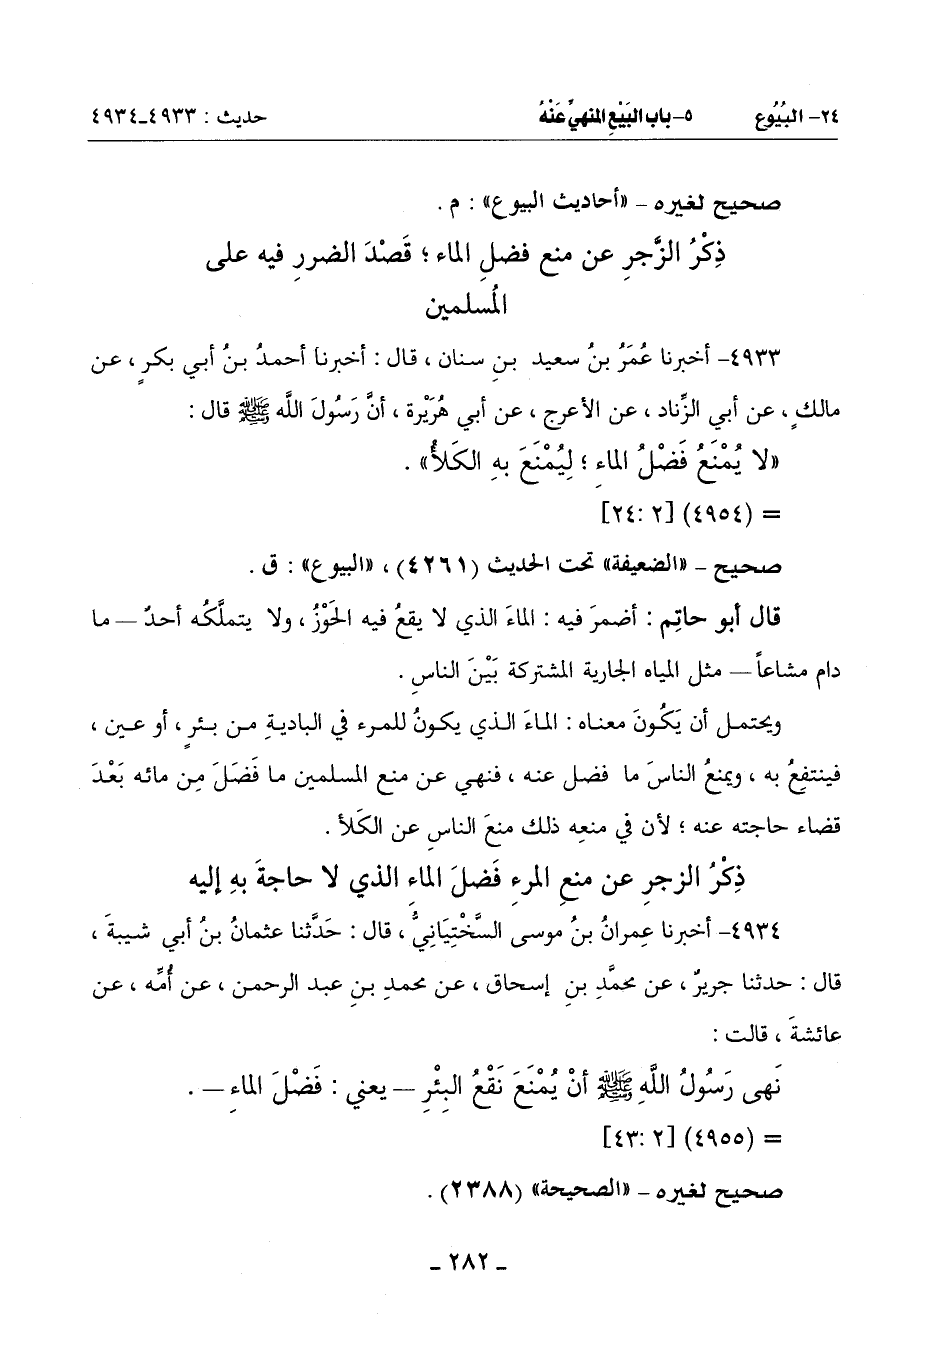 ٢٤- البُيُوع ٥-باب البَيْعِ المنهيِّ عَنْهُ حديث : ٤٩٣٣-٤٩٣٤
صحيح لغيره - «أحاديث البيوع» : م .
ذِكْرُ الزَّجرِ عن منع فضلِ الماء ؛ قَصْدَ الضررِ فيه على
المُسلمين
٤٩٣٣- أخبرنا عُمَرُ بنُ سعيد بنِ سنان ، قال : أخبرنا أحمدُ بنُ أبي بكرٍ ، عن
مالكٍ ، عن أبي الزِّناد ، عن الأعرج ، عن أبي هُرَيْرة ، أنَّ رَسُولَ اللَّه ﷺ قال :
«لا يُمْنَعُ فَضْلُ الماءِ ؛ لِيُمْنَعَ به الكَلأُ» .
= (٤٩٥٤) [٢ :٢٤]
صحيح - «الضعيفة» تحت الحديث (٤٢٦١) ، «البيوع» : ق .
قال أبو حاتِم : أضمرَ فيه : الماءَ الذي لا يقعُ فيه الحَوْزُ ، ولا يتملَّكُه أحدٌ — ما
دام مشاعاً — مثل المياه الجارية المشتركة بَيْنَ الناسِ .
ويحتمل أن يَكُونَ معناه : الماءَ الذي يكونُ للمرء في البادية من بئرٍ ، أو عين ،
فينتفِعُ به ، ويمنعُ الناسَ ما فضل عنه ، فنهي عن منع المسلمين ما فَضَلَ مِن مائه بَعْدَ
قضاء حاجته عنه ؛ لأن في منعِه ذلك منعَ الناسِ عن الكَلأ .
ذِكْرُ الزجرِ عن منعِ المرءِ فَضلَ الماءِ الذي لا حاجةَ بهِ إليه
٤٩٣٤- أخبرنا عِمرانُ بنُ موسى السَّخْتِيَانِيُّ ، قال : حَدَّثنا عثمانُ بنُ أبي شيبةَ ،
قال : حدثنا جريرٌ ، عن محمَّدِ بنِ إسحاق ، عن محمدِ بنِ عبد الرحمن ، عن أُمِّه ، عن
عائشةَ ، قالت :
نَهى رَسُولُ اللَّهِ ﷺ أنْ يُمْنَعَ نَقْعُ البِئْرِ — يعني : فَضْلَ الماءِ — .
= (٤٩٥٥) [٢ :٤٣]
صحيح لغيره - «الصحيحة» (٢٣٨٨) .
- ٢٨٢ -